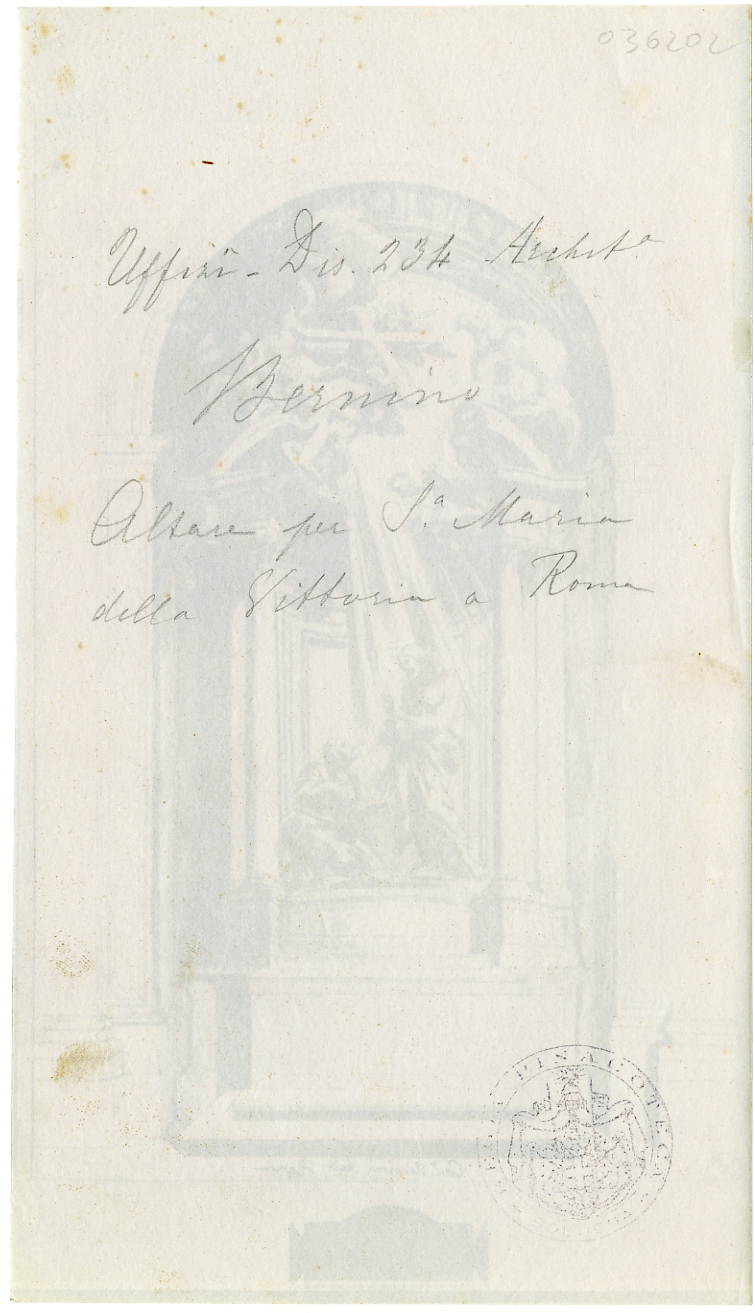 036202
Uffizi - Dis. 234 Archit.ª
Bernino
Altare per S.ª Maria
della Vittoria a Roma
PINACOTECA